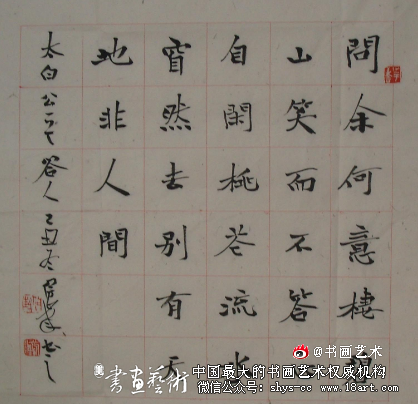 問余何意棲碧
山笑而不答心
自閑桃花流水
窅然去別有天
地非人間
太白答人乙丑冬
@书画艺术
書画藝術
中国最大的书画艺术权威机构
微信公众号：shys-cc www.18art.com